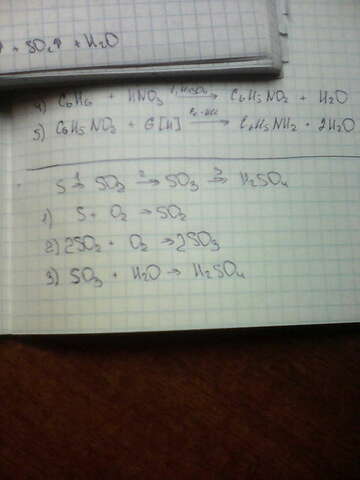 + SO2↑ + H2O
4) C6H6 + HNO3 → C6H5NO2 + H2O
5) C6H5NO2 + 6[H] → C6H5NH2 + 2H2O
S →1 SO2 →2 SO3 →3 H2SO4
1) S + O2 → SO2
2) 2SO2 + O2 → 2SO3
3) SO3 + H2O → H2SO4